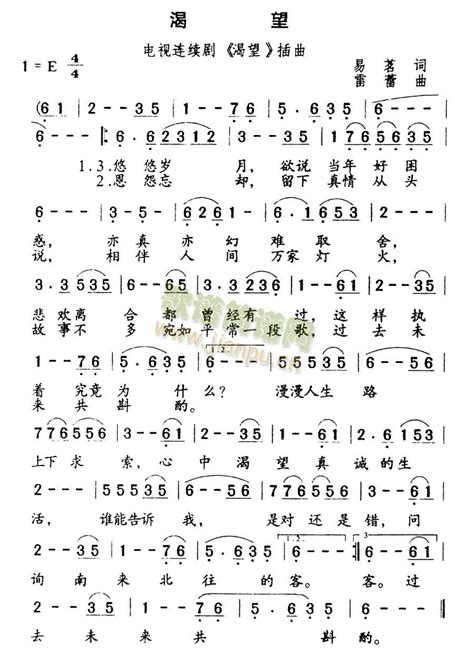 渴 望
电视连续剧《渴望》插曲
1 = E 4/4
易 茗 词
雷 蕾 曲
(6 1 | 2 - - 3 5 | 1 - - 7 6 | 5 · 6 3 5 · | 6 - - -
6 - - ) | 3 · 6 6 2 3 1 2 | 3 - - 6 · | 5 · 6 3 5 · | 1 7 6 5 6 3 5
1.3.悠 悠岁 月,欲说 当年 好 困
2.恩 怨忘 却,留下 真情 从头
6 - - - | 3 - 5 - | 6 2 6 1 - | 6 · 1 6 5 3 | 2 - - -
惑, 亦真 亦幻 难 取 舍,
说, 相伴 人 间 万家 灯 火,
3 · 3 5 3 5 | 6 - - 6 5 | 3 · 3 2 3 6 | 2 - - 1 2 | 3 · 5 3 5
悲 欢离 合 都 曾经 有 过,这样 执
故事不 多 宛如平 常一 段 歌 过去 未
1.2.
1 - - 7 6 | 5 · 6 3 5 · | 6 - - - | 6 - - 6 1 | 2 - - 3 5
着 究竟 为 什 么? 漫漫人生 路
来 共 斟 酌。
7 7 6 5 5 6 | 3 - - 6 1 | 2 - - 3 5 | 6 - - 6 1 | 2 · 6 1 5 3
上下 求 索,心 中 渴望 真 诚 的 生
2 - - - | 3 5 5 5 3 5 | 1 - - 7 6 | 5 · 6 3 5 | 1 7 6 5 3 5
活, 谁能告诉 我, 是对 还是 错,问
1.2.
3
询 南 来 北 往 的 客。 客。过
2 - - 3 5 | 1 - - 7 6 | 5 · 6 3 5 | 6 - - - | 6 - - -
去 未 来 共 斟 酌。
歌谱简谱网
www.jianpu.cn